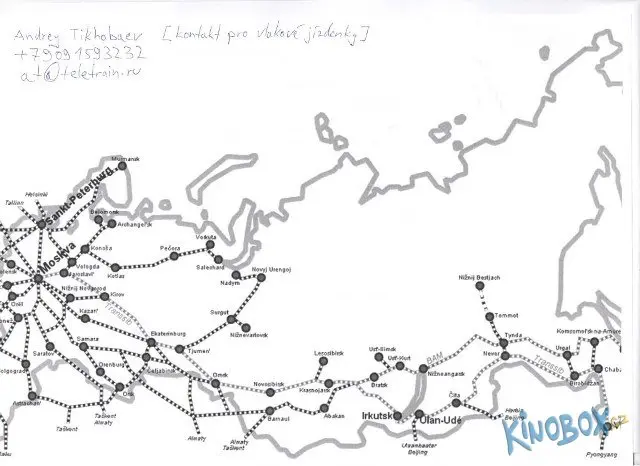 Andrey Tikhobaev [kontakt pro vlakové jízdenky]
+79091593232
at@teletrain.ru
Murmansk
Helsinki
Tallinn
Sankt-Peterburg
Belomorsk
Archangeľsk
Vorkuta
Konoša
Pečora
Moskva
Vologda
Salechard
Jaroslavľ
Kotlas
Nadym
Novyj Urengoj
Nižnij Bestjach
Nižnij Novgorod
Kirov
Orël
Transsib
Kazaň
Surgut
Tommot
Nižnevartovsk
Komsomoľsk-na-Amure
Samara
Ekaterinburg
Tynda
Saratov
Tjumeň
Usť-Ilimsk
Urgal
Lesosibirsk
Usť-Kut
BAM
Never
Transsib
Orenburg
Čeljabinsk
Omsk
Bratsk
Nižneangarsk
Birobidžan
Orsk
Novosibirsk
Krasnojarsk
Čita
Astrachaň
Barnaul
Abakan
Irkutsk
Ulan-Udė
Harbin
Beijing
Taškent
Almaty
Taškent
Almaty
Almaty
Taškent
Ulaanbaatar
Beijing
KINOBOX.CZ
Pyongyang